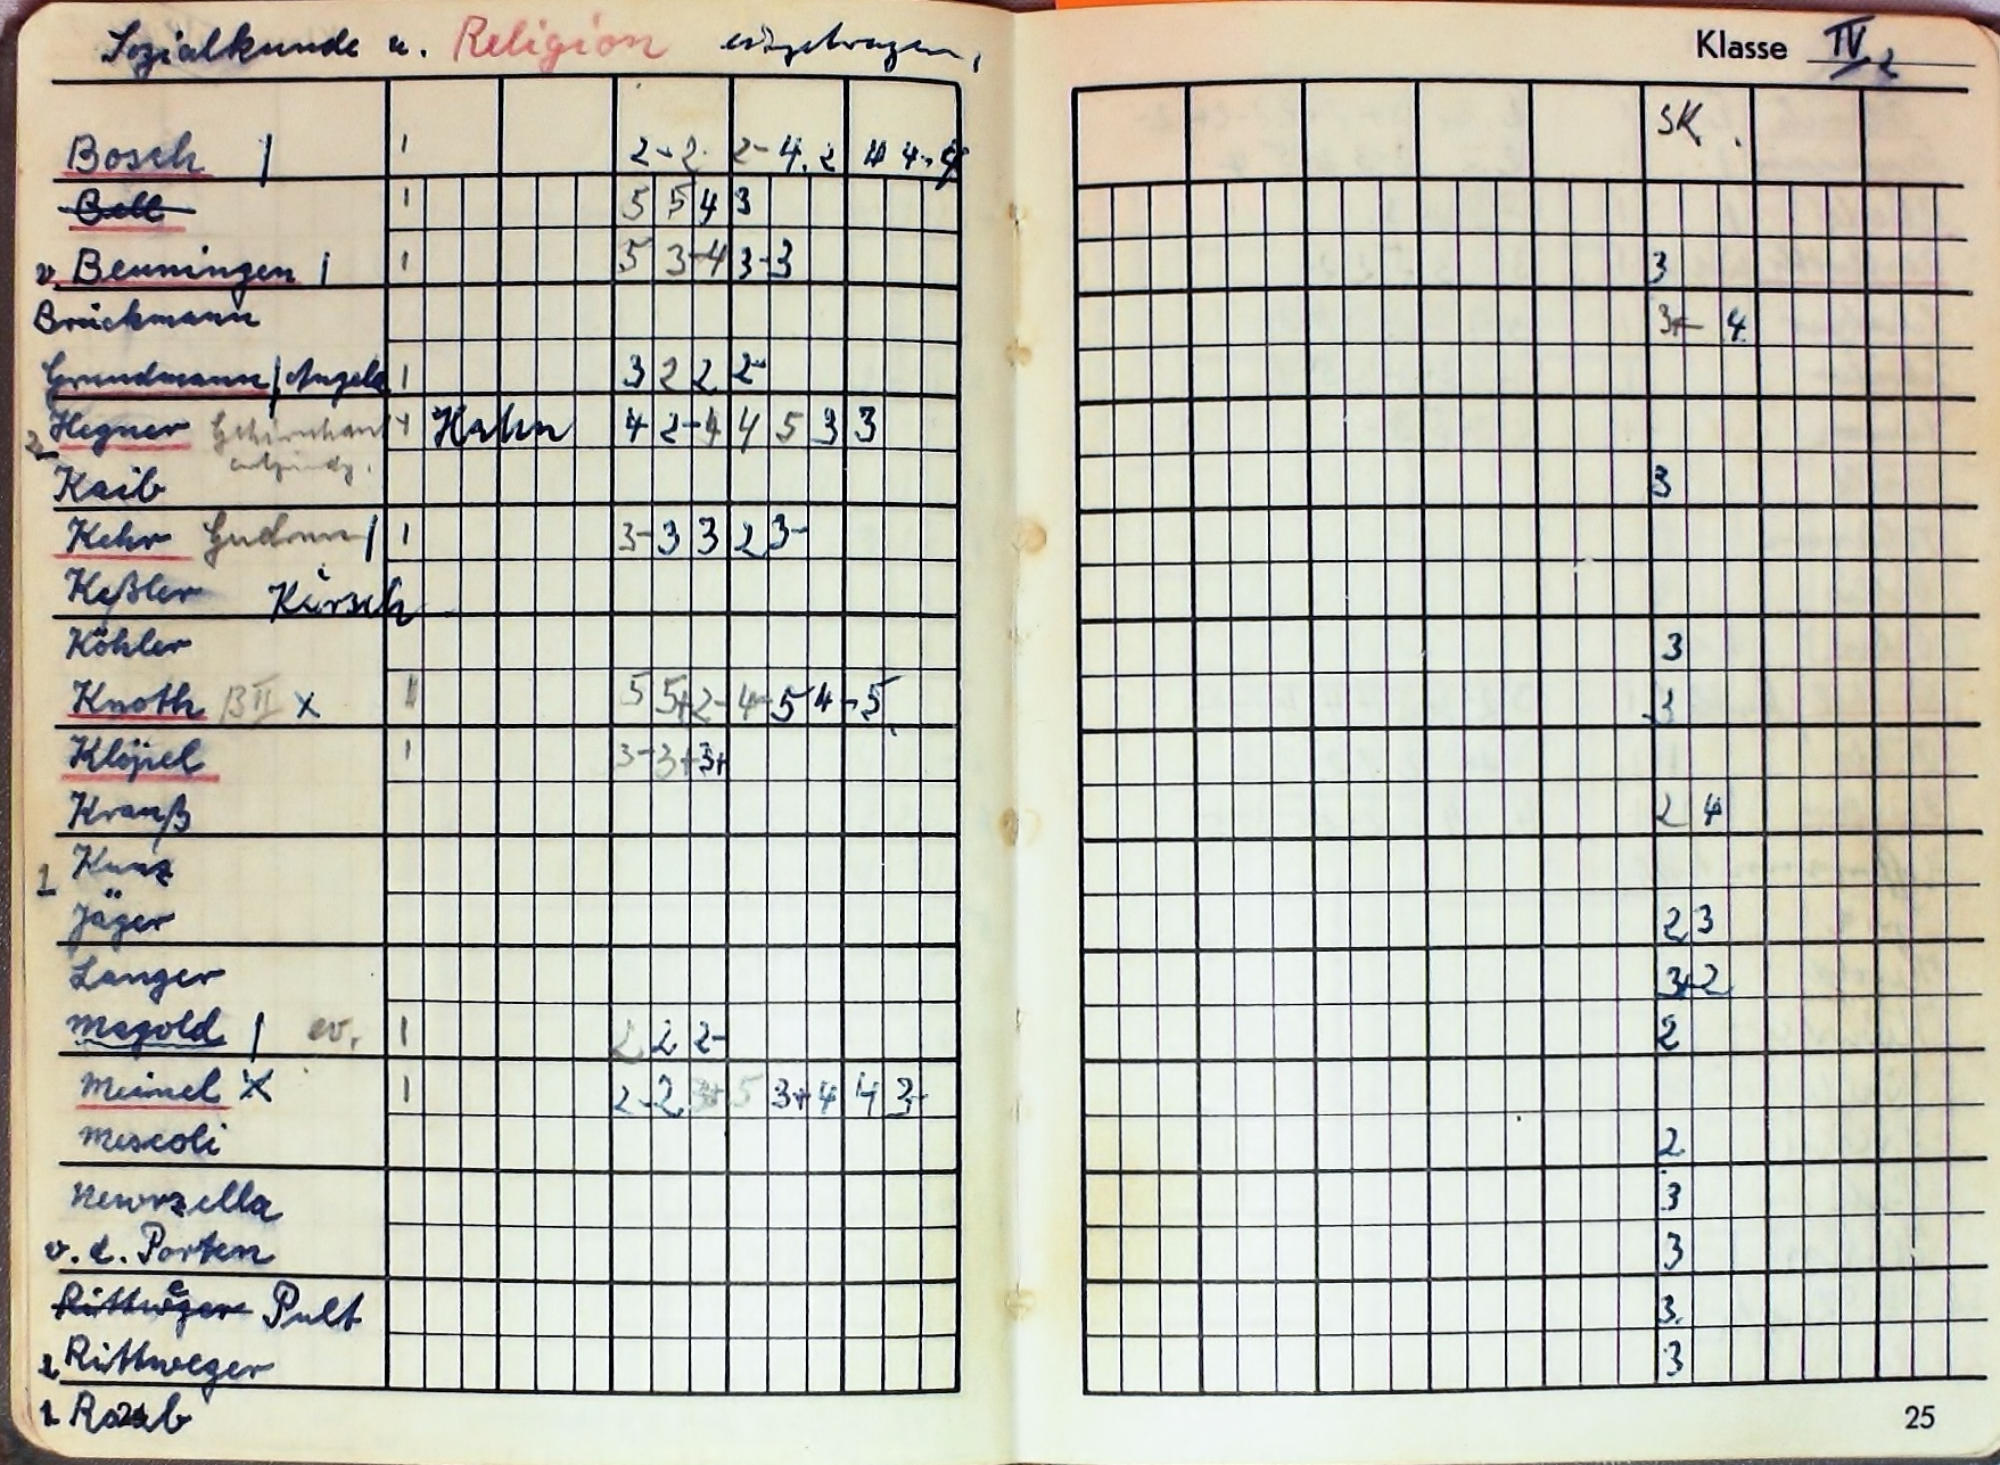 Sozialkunde u. Religion eingetragen,
Klasse IV/2
SK.
Bosch | 1 2-2 2-4.2 4 4-4
Bell 1 5 5 4 3
v. Benningen | 1 5 3-4 3-3 3
Brückmann 3+- 4
Grundmann | Angela 1 3 2 2 2-
2 Hegner Hahn 4 2-4 4 5 3 3
Kaib 3
Kehr Gudrun | 1 3-3 3 2 3-
Keßler Kirsch
Köhler 3
Knoth BII x 5 5+2-4-5 4-5 3
Klöpel 1 3-3+3+
Krauß 2 4
1 Kunz
Jäger 2 3
Langer 3+2
Magold | ev. 1 2 2 2- 2
Meinel x 1 2-2 3+ 5 3+4 4 3-
Mescoli 2
Newrzella 3
v. d. Porten 3
Rüttweger Pult 3.
2 Rüttweger 3
1 Raab
25